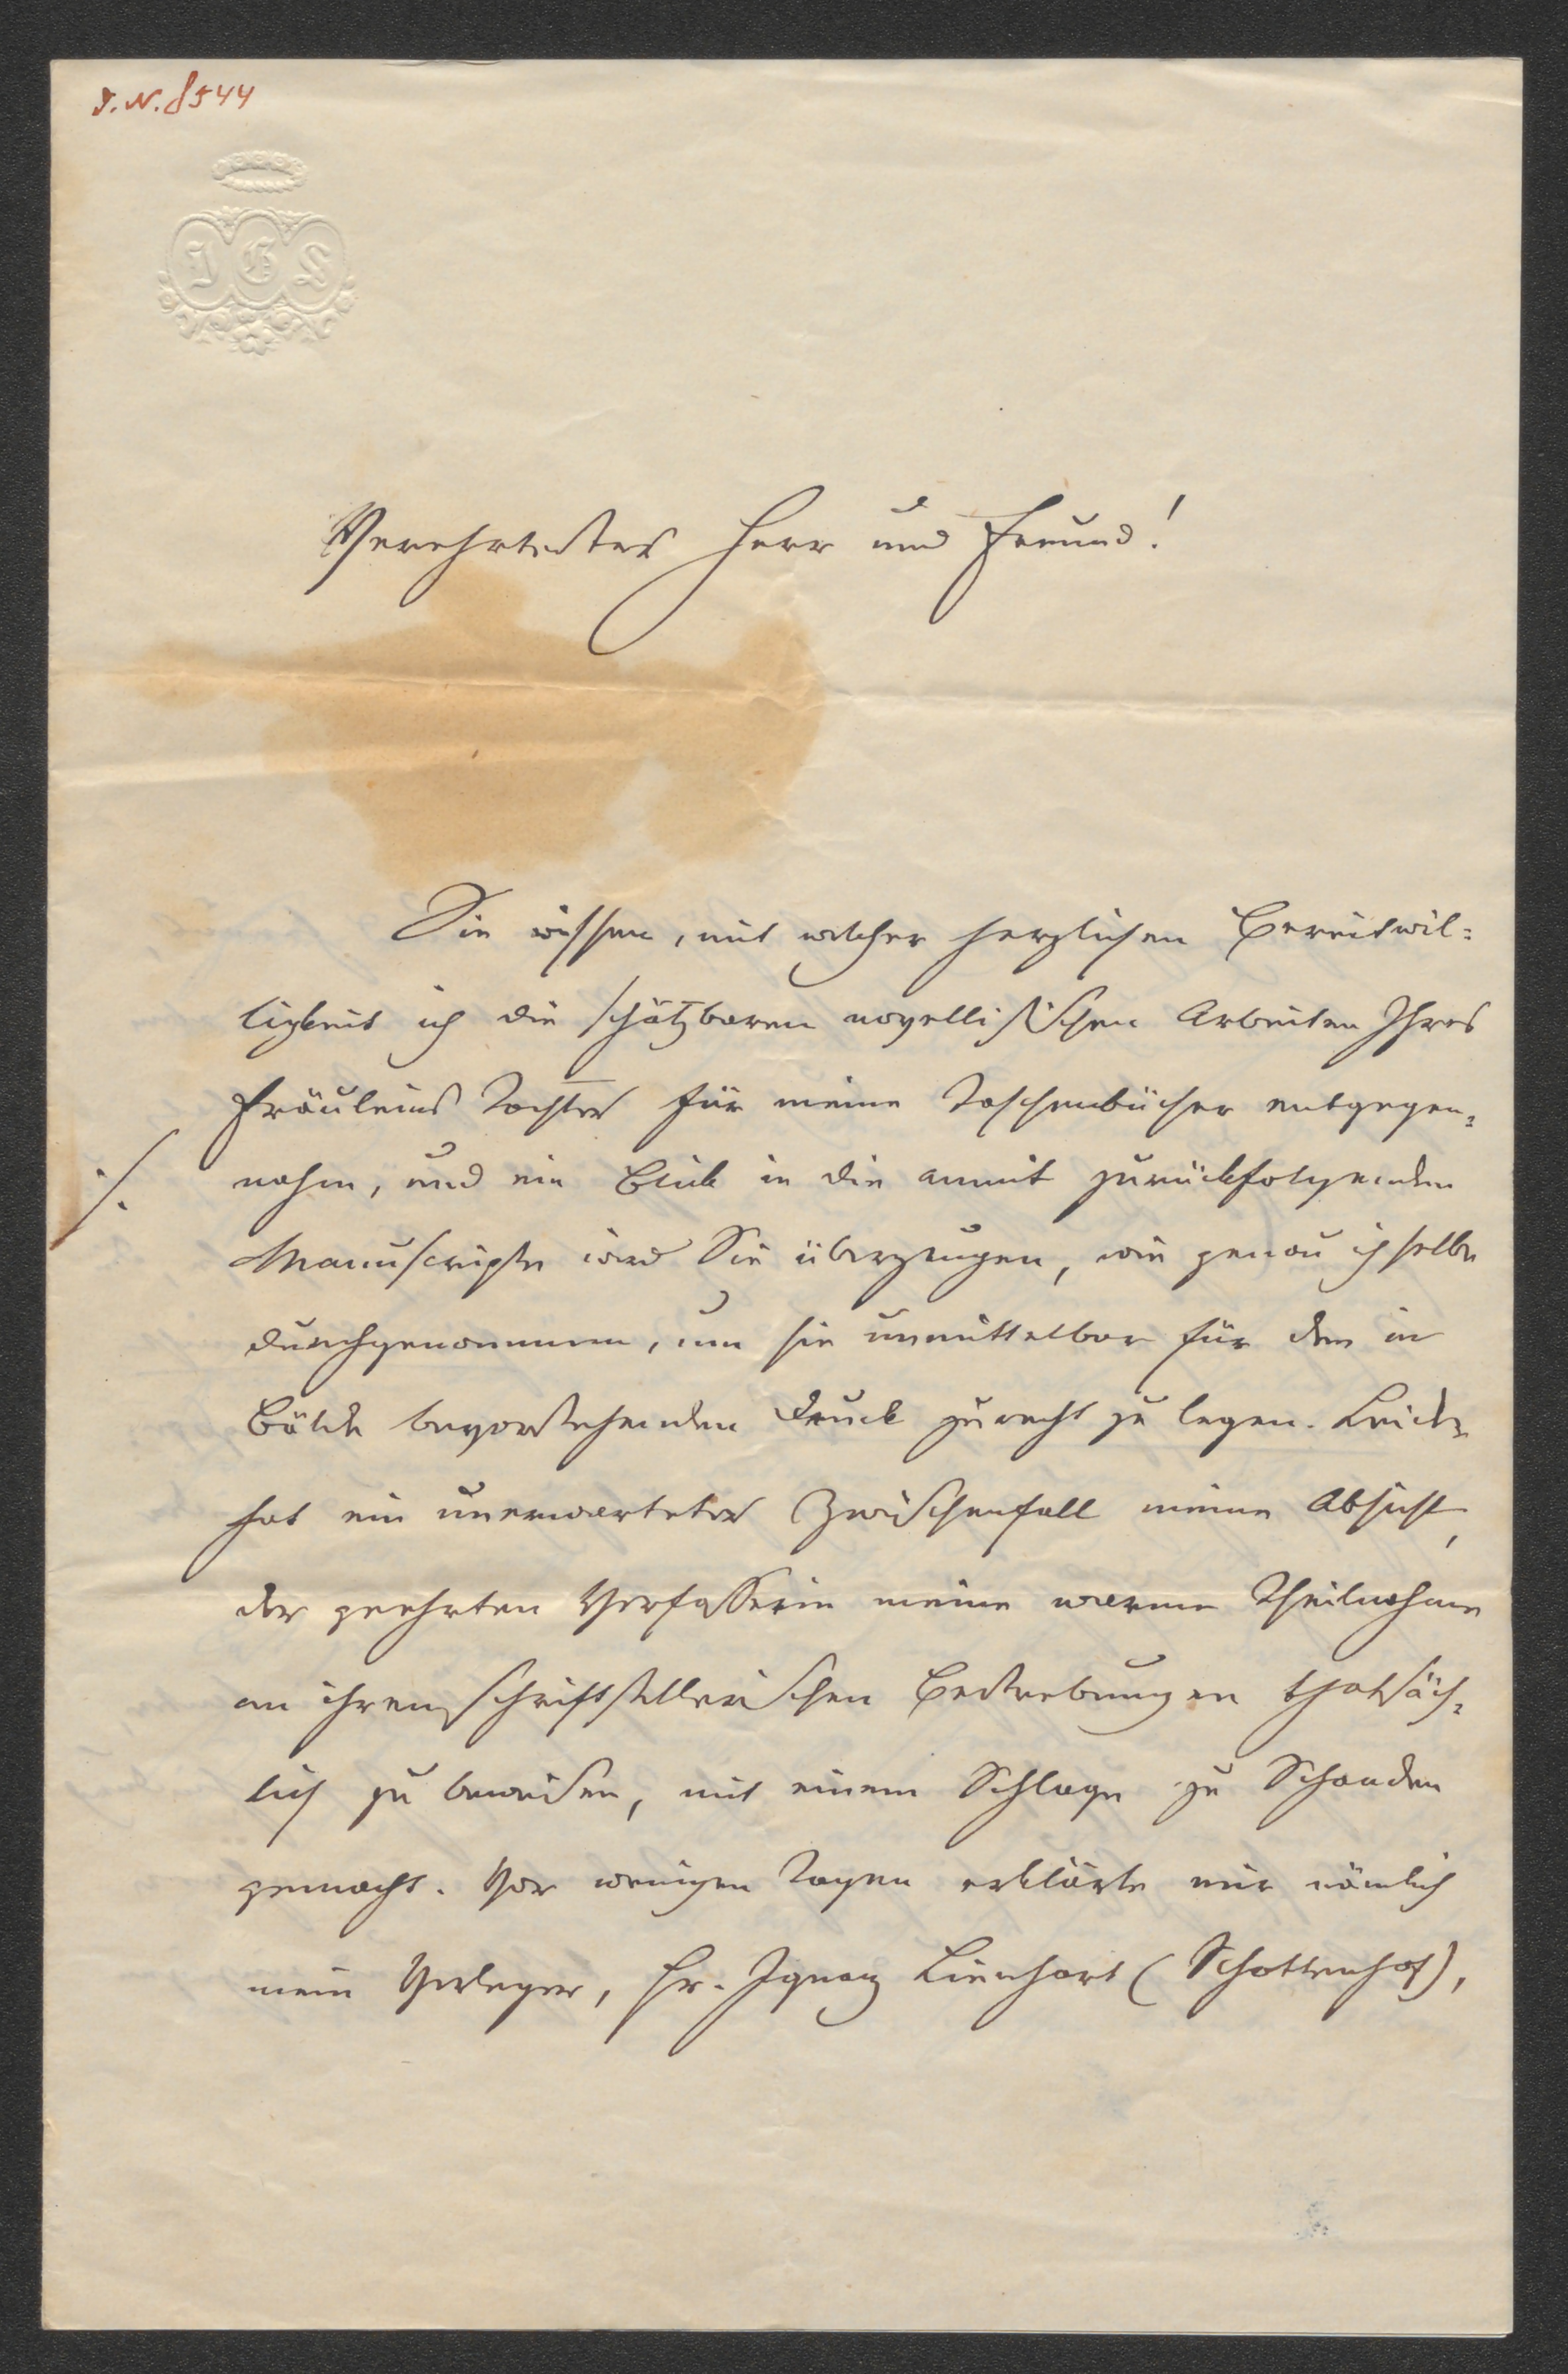 I. N. 8544
J G S
Verehrtester Herr und Freund!
Sie wissen, mit welcher herzlichen Bereitwil=
ligkeit ich die schätzbaren novellistischen Arbeiten Ihres
Fräuleins Tochter für meine Taschenbücher entgegen=
./. nahm, und ein Blick in die anmit zurückfolgenden
Manuscripte wird Sie überzeugen, wie genau ich selbe
durchgenommen, um sie unmittelbar für den in
Bälde bevorstehenden Druck zurecht zu legen. Leider
hat ein unerwarteter Zwischenfall meine Absicht,
der geehrten Verfasserin meine warme Theilnahme
an ihren schriftstellerischen Bestrebungen thatsäch=
lich zu beweisen, mit einem Schlage zu Schanden
gemacht. Vor wenigen Tagen erklärte mir nämlich
mein Verleger, Hr. Ignaz Lienhart (Schottenhof),